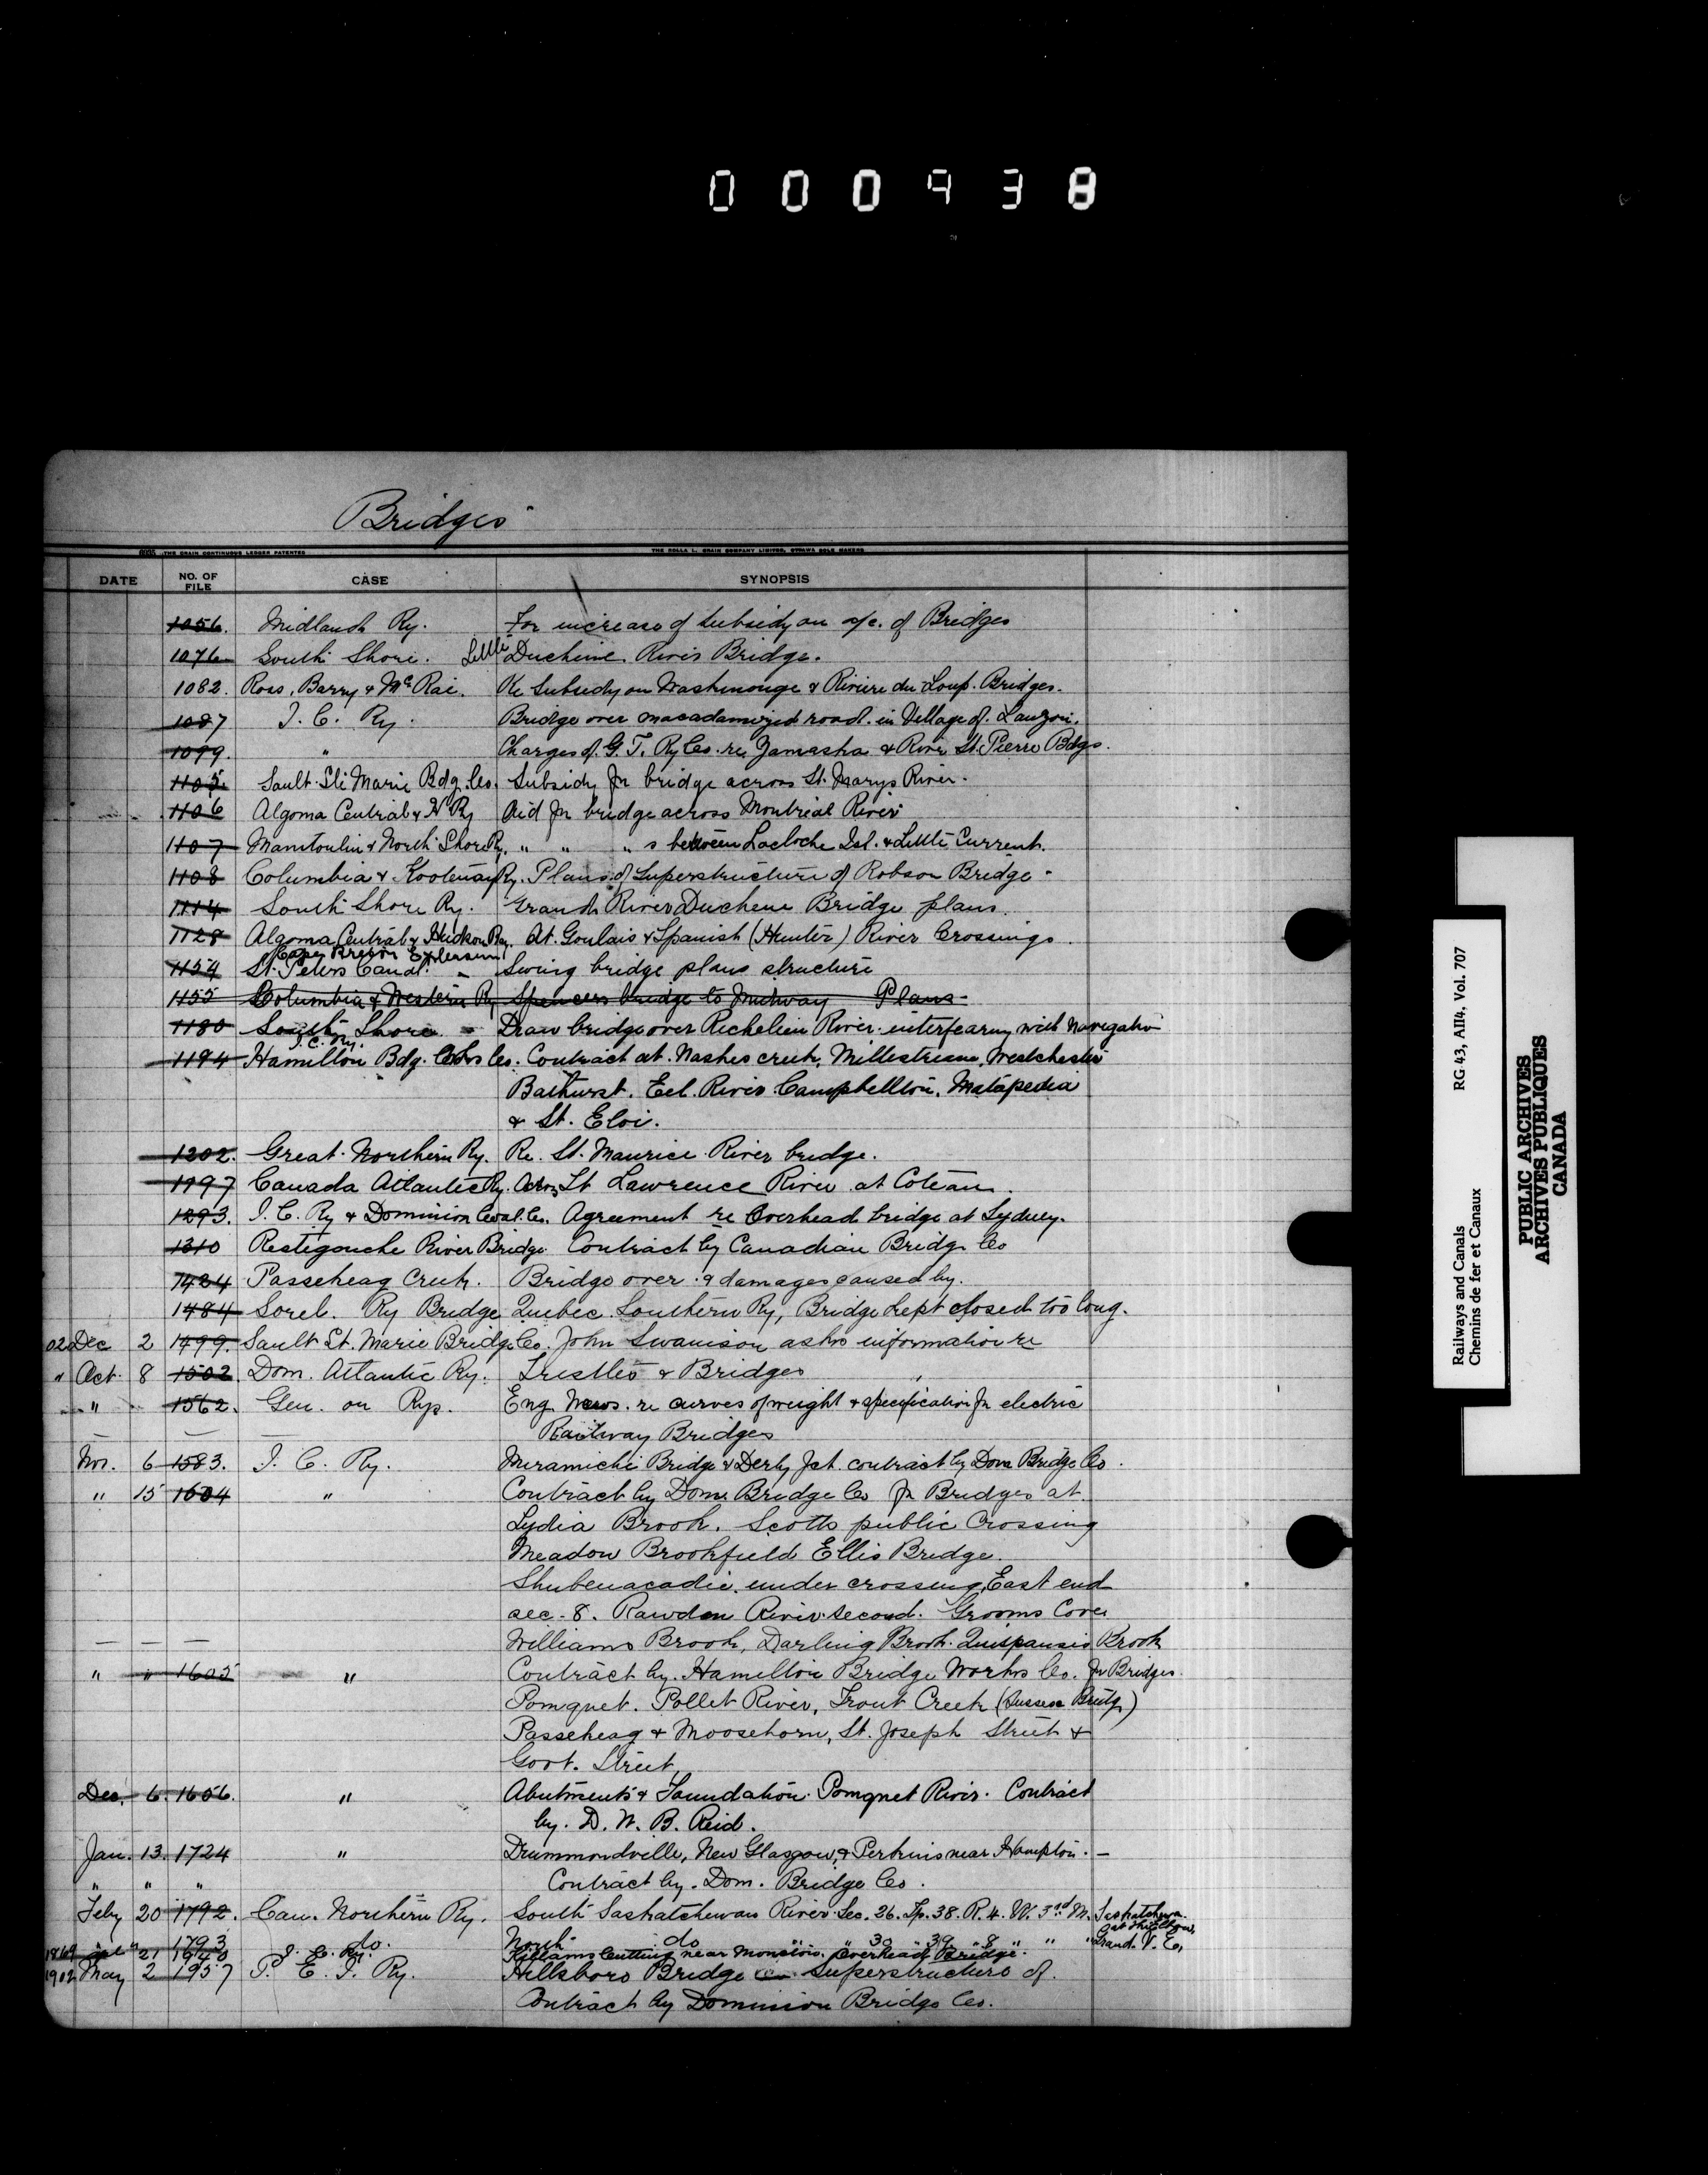 000938
Bridges
6035 THE CRAIN CONTINUOUS LEDGER PATENTED THE ROLLA L. CRAIN COMPANY LIMITED, OTTAWA SOLE MAKERS
DATE NO. OF FILE CASE SYNOPSIS
1056. Midland Ry. For increase of subsidy on a/c. of Bridges
1076 South Shore. Little Duchene River Bridge.
1082. Ross, Barry & McRae. Re Subsidy on Mashinonge & Riviere du Loup. Bridges.
1087 I. C. Ry. Bridge over macadamized road in Village of Lauzon.
1099. " Charges of G. T. Ry Co. re Yamaska & River St. Pierre Bdgs.
1105. Sault Ste Marie Bdg. Co. Subsidy for bridge across St. Marys River.
1106 Algoma Central & H Ry Aid for bridge across Montreal River
1107 Manitoulin & North Shore Ry. " " " s between Lacloche Isl. & Little Current.
1108 Columbia & Kootenay Ry. Plans of Superstructure of Robson Bridge
1114 South Shore Ry. Grand River Duchene Bridge plans.
1128 Algoma Central & Hudson Bay. At Goulais & Spanish (Hunter) River Crossings.
Cape Breton Extension
1154 St. Peters Canal. Swing bridge plans structure
1155 Columbia & Western Ry Spencers bridge to Midway Plans
1180 South Shore Draw bridge over Richelieu River interfearing with Navigation
I. C. Ry.
1194 Hamilton Bdg. Works Co. Contract at Nashes creek, Millstream, Westchester
Bathurst, Eel River Campbellton, Matapedia
& St. Eloi.
1202. Great Northern Ry. Re. St. Maurice River bridge.
1197 Canada Atlantic Ry. Across St Lawrence River at Coteau.
1293. I. C. Ry & Dominion Coal Co. Agreement re Overhead bridge at Sydney.
1310 Restigouche River Bridge Contract by Canadian Bridge Co
1424 Passekeag Creek. Bridge over & damages caused by.
1484 Sorel. Ry Bridge Quebec Southern Ry, Bridge kept closed too long.
02 Dec 2 1499. Sault St. Marie Bridge Co. John Swanison asks information re
" Oct. 8 1502 Dom. Atlantic Ry. Trestles & Bridges
" 1562. Gen. on Rys. Eng. News. re curves of weight & specification for electric
Railway Bridges
Nov. 6 1583. I. C. Ry. Miramichi Bridge & Derby Jct. contract by Dom Bridge Co.
" 15 1604 " Contract by Dom. Bridge Co for Bridges at
Lydia Brook. Scotts public Crossing
Meadow Brookfield Ellis Bridge.
Shubenacadie under crossing, East end
sec. 8. Rawdon River second. Grooms Cove
Williams Brook, Darling Brook. Quispamsis Brook
" " 1605 " Contract by Hamilton Bridge Works Co. for Bridges.
Pomquet. Pollet River, Trout Creek (Sussex Bridge)
Passekeag & Moosehorn, St. Joseph Street &
Govt. Street,
Dec. 6. 1656. " Abutments & Foundation Pomquet River. Contract
by. D. W. B. Reid.
Jan. 13. 1724 " Drummondville, New Glasgow, & Perkins near Hampton. —
" " " Contract by. Dom. Bridge Co.
Feby 20 1792. Can. Northern Ry. South Saskatchewan River Sec. 26. Tp. 38. R. 4. W. 3rd M. Saskatchewan
" 1793 do. North do " 30 " 39 " 8 " " " Grand V. Co,
21 1840 I. C. Ry. Killams Cutting near Moncton. Overhead Bridge.
1902 May 2 1957 P. E. I. Ry. Hillsboro Bridge Superstructure of.
Contract by Dominion Bridge Co.
Railways and Canals RG 43, AII4, Vol. 707
Chemins de fer et Canaux
PUBLIC ARCHIVES
ARCHIVES PUBLIQUES
CANADA